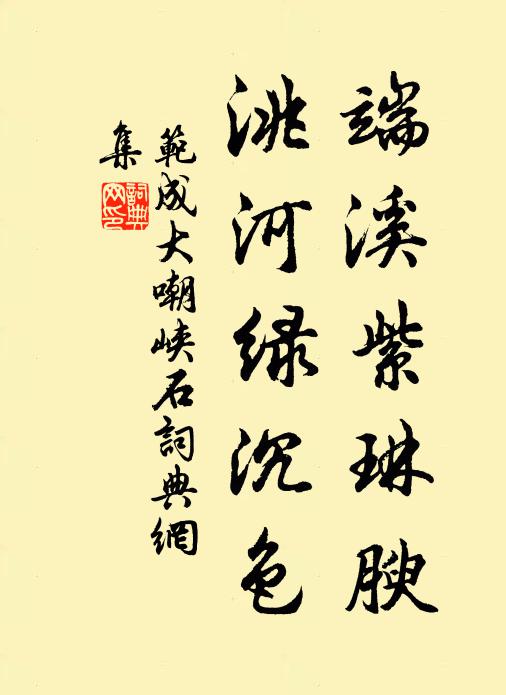 端溪紫琳腴
洮河绿沉色
範成大嘲峡石詞典網
集
詞典
网印